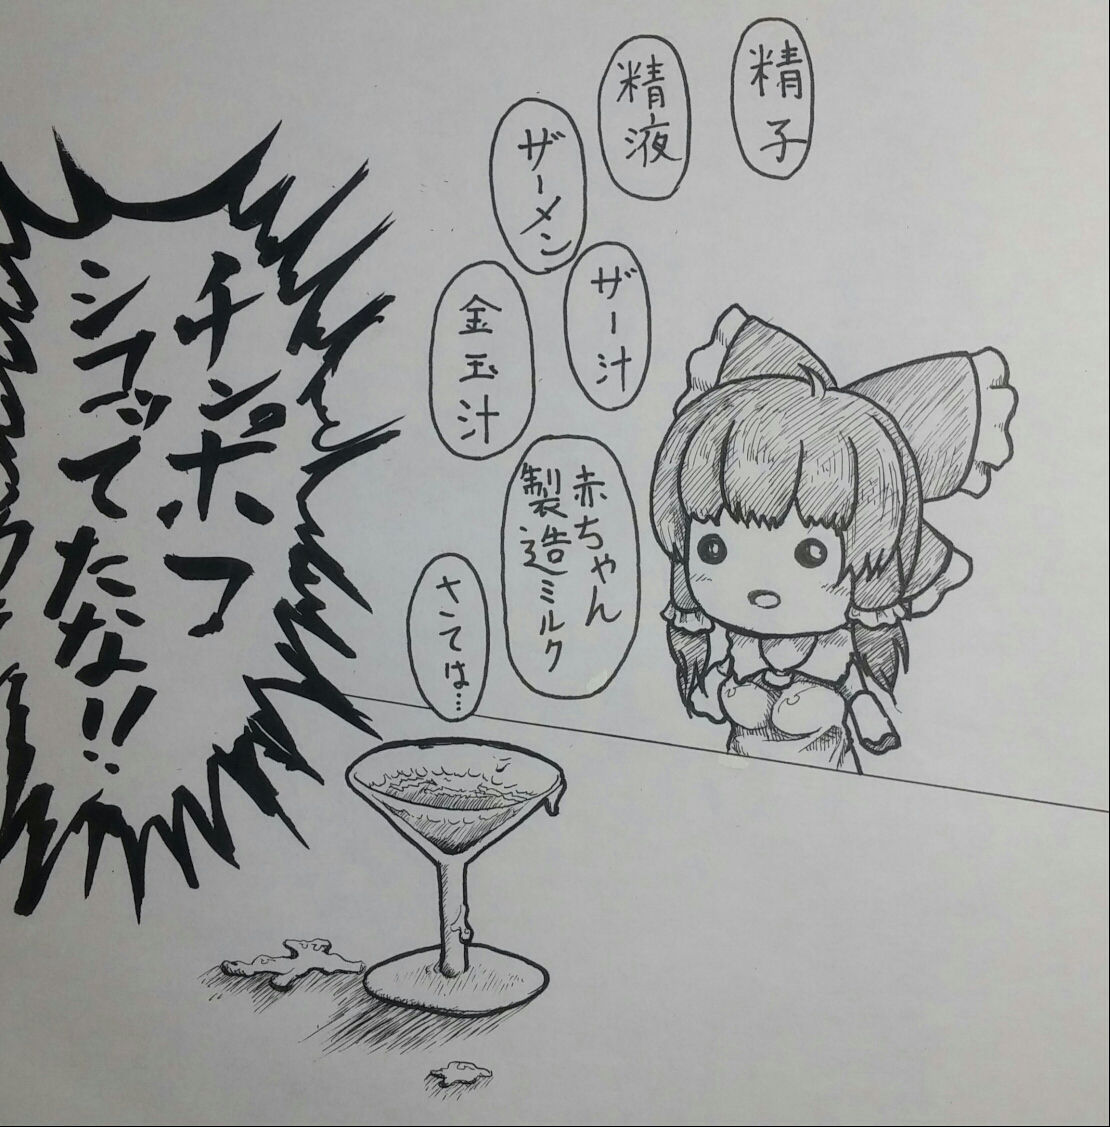 精子
精液
ザーメン
ザー汁
金玉汁
赤ちゃん
製造ミルク
さては…
チンポコ
シコってたな!!